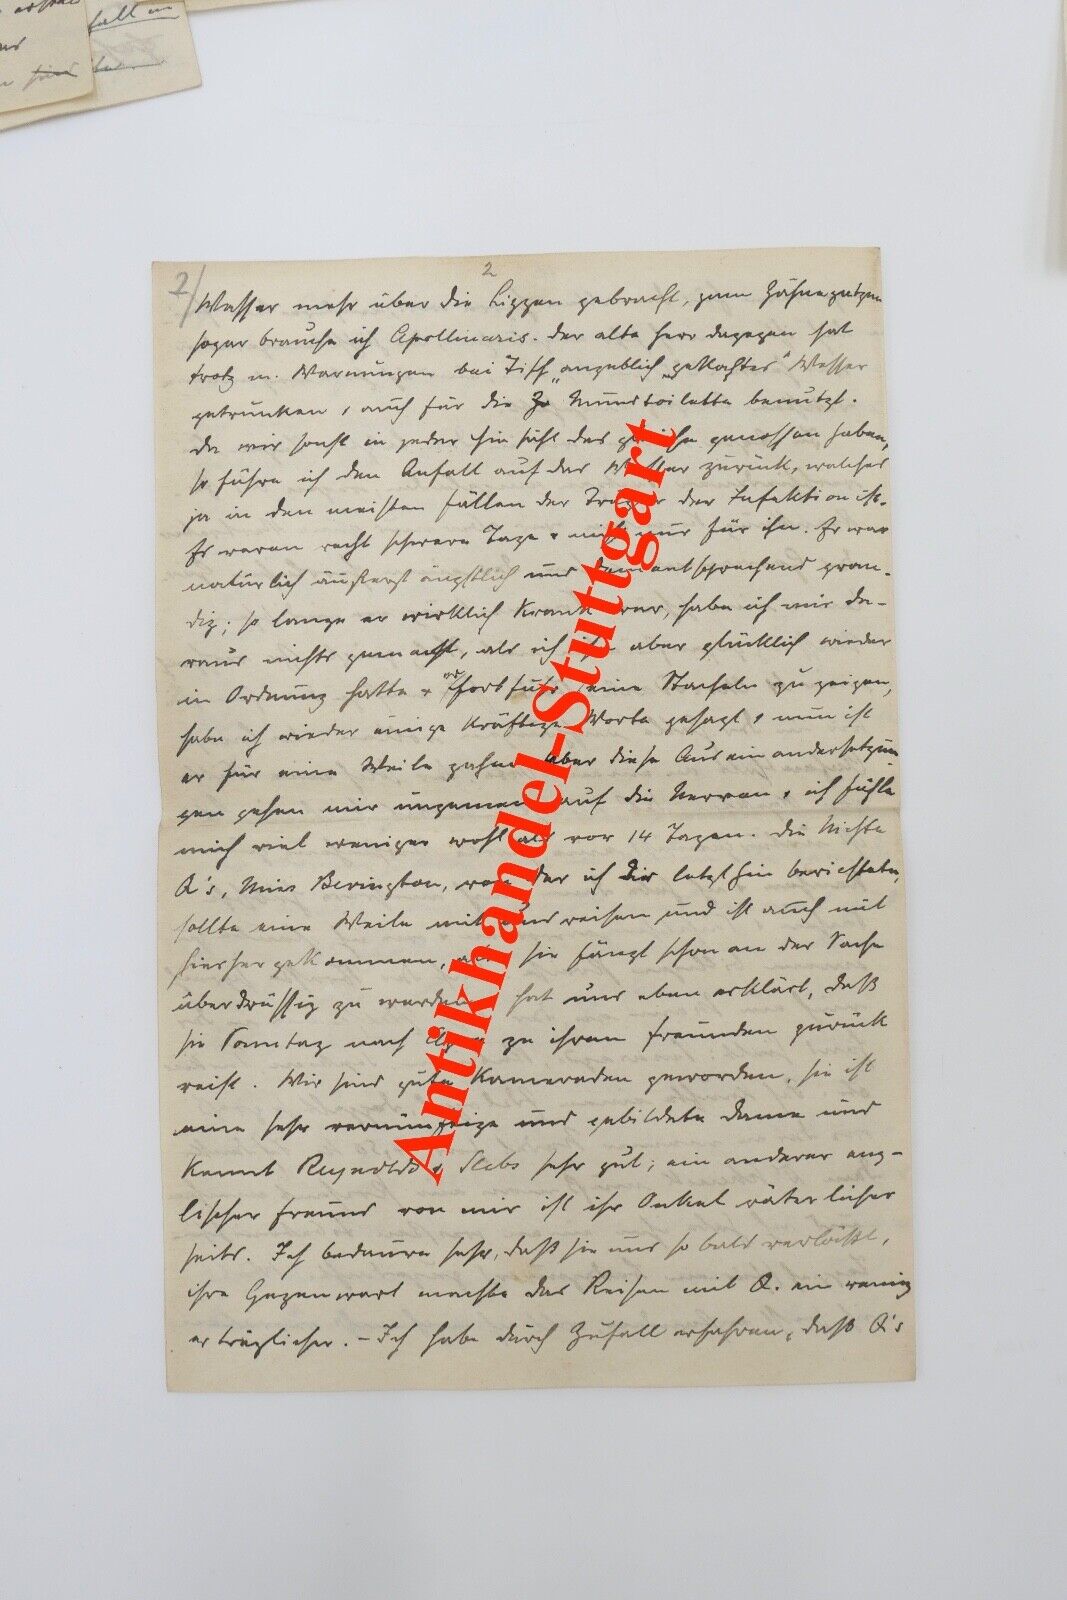 2/
2
Wasser mehr über die Lippen gebracht, zum Zähneputzen
sogar brauche ich Apollinaris. Der alte Herr dagegen hat
trotz m. Warnungen bei Tisch „angeblich „gekochtes" Wasser
getrunken, auch für die Zr Mundtoilette benutzt.
Da wir sonst in jeder Hinsicht das gleiche genossen haben,
so führe ich den Anfall auf das Wasser zurück, welches
ja in den meisten Fällen der Träger der Infektion ist.
Es waren recht schwere Tage & nicht nur für ihn. Er war
natürlich äußerst ängstlich und dementsprechend gran-
dig; so lange er wirklich krank war, habe ich mir da-
raus nichts gemacht, als ich ihn aber glücklich wieder
in Ordnung hatte & er fortfuhr seine Stacheln zu zeigen,
habe ich wieder einige kräftige Worte gesagt & nun ist
er für eine Weile zahm. Aber diese Auseinandersetzun-
gen gehen mir ungemein auf die Nerven & ich fühle
mich viel weniger wohl als vor 14 Tagen. Die Nichte
Q's, Miss Bevington, von der ich Dir letzthin berichtete,
sollte eine Weile mit uns reisen und ist auch mit
hierher gekommen, aber sie fängt schon an der Sache
überdrüssig zu werden & hat uns eben erklärt, daß
sie Sonntag nach zu ihren Freunden zurück
reist. Wir sind gute Kameraden geworden, sie ist
eine sehr vernünftige und gebildete Dame und
kennt Reynolds & Slebs sehr gut; ein anderer eng-
lischer Freund von mir ist ihr Onkel väterlicher
seits. Ich bedaure sehr, daß sie uns so bald verläßt,
ihre Gegenwart machte das Reisen mit Q. ein wenig
erträglicher. – Ich habe durch Zufall erfahren, daß Q's
Antikhandel-Stuttgart